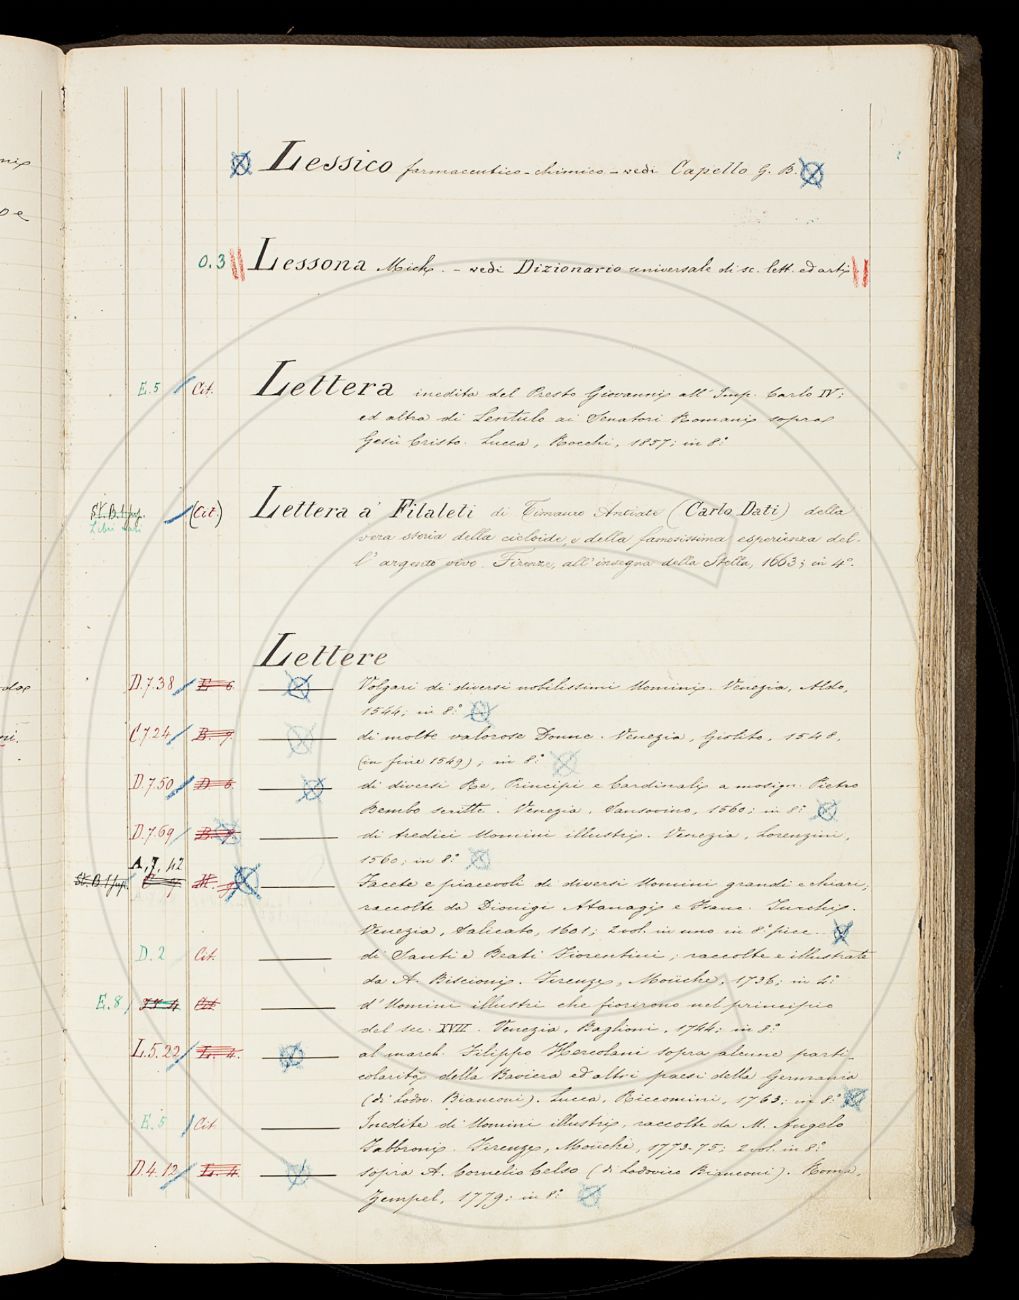 Lessico farmaceutico-chimico - vedi Capello G. B.
O.3 Lessona Mich. - vedi Dizionario universale di sc. lett. ed arti
E.5 Cit. Lettera inedita del Presto Giovanni all' Imp. Carlo IV;
ed altra di Lentulo ai Senatori Romani sopra
Gesù Cristo. Lucca, Rocchi, 1857; in 8.°
(Cit) Lettera a' Filaleti di Timauro Antiate (Carlo Dati) della
vera storia della cicloide, e della famosissima esperienza del-
l' argento vivo. Firenze, all' insegna della Stella, 1663; in 4.°
Lettere
D.7.38 E 6 Volgari di diversi nobilissimi Uomini. Venezia, Aldo,
1544; in 8.°
C.7.24 B. 7 di molte valorose Donne. Venezia, Giolito, 1548,
(in fine 1549); in 8.°
D.7.50 D 6 di diversi Re, Principi e Cardinali a mosign. Pietro
Bembo scritte. Venezia, Sansovino, 1560; in 8.°
D.7.69 B. 9. di tredici Uomini illustri. Venezia, Lorenzini,
1560; in 8.°
A.7.42
Facete e piacevoli di diversi Uomini grandi e chiari,
raccolte da Dionigi Atanagi e Franc. Turchi.
Venezia, Salicato, 1601; 2 vol. in uno in 8.° picc.
D.2 Cit. di Santi e Beati Fiorentini; raccolte e illustrate
da A. Biscioni. Firenze, Moücke, 1736; in 4.°
E.8 Cit d' Uomini illustri che fiorirono nel principio
del sec. XVII. Venezia, Baglioni, 1744; in 8.°
L.5.22 L. 4. al march. Filippo Hercolani sopra alcune parti-
colarità della Baviera ed altri paesi della Germania
(di Lodov. Bianconi). Lucca, Riccomini, 1763; in 8.°
E.5 Cit Inedite di Uomini illustri, raccolte da M. Angelo
Fabbroni. Firenze, Moücke, 1773-75; 2 vol. in 8.°
D.4.12 L. 4. sopra A. Cornelio Celso (di Lodovico Bianconi). Roma,
Zempel, 1779; in 8.°